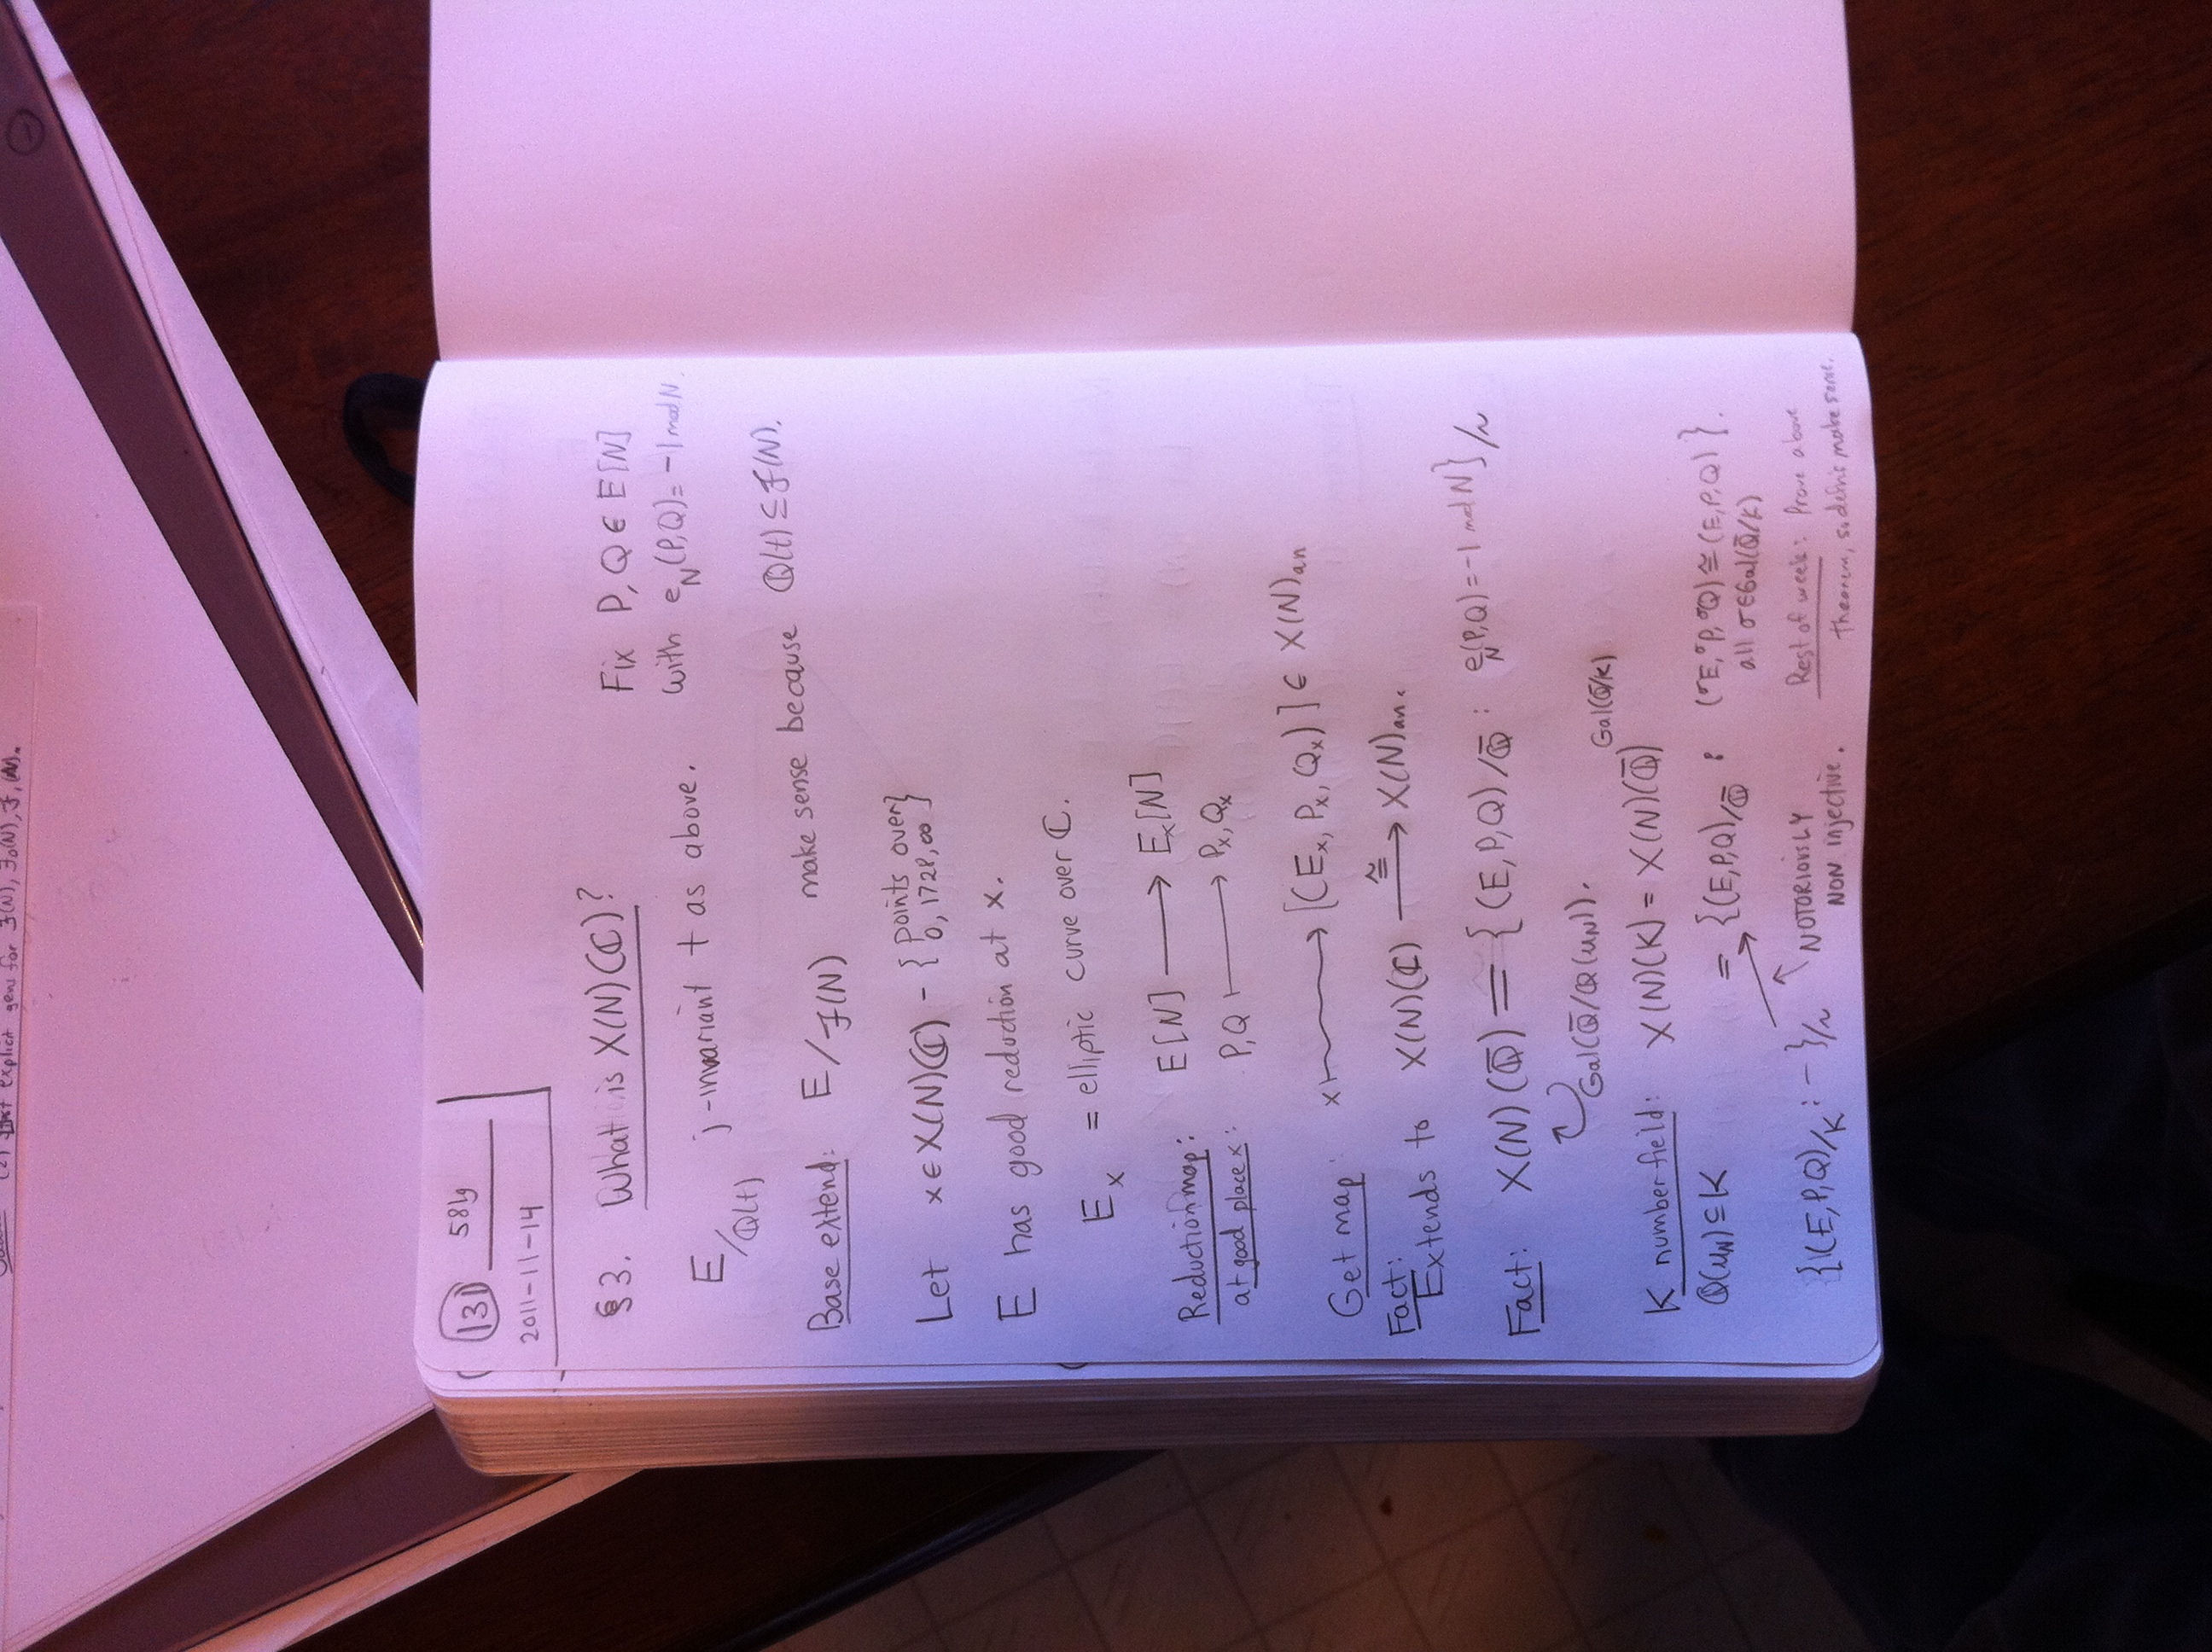 (2) explicit gens for F(N), F₀(N), F₁(N).
131 581g
2011-11-14
§3. What is X(N)(ℂ)?
E/ℚ(t) j-invariant t as above. Fix P, Q ∈ E[N]
with e_N(P,Q) = -1 mod N.
Base extend: E/F(N) make sense because ℚ(t) ⊆ F(N).
Let x ∈ X(N)(ℂ) - {points over
0, 1728, ∞}
E has good reduction at x.
E_x = elliptic curve over ℂ.
Reduction map: E[N] ⟶ E_x[N]
at good place x: P,Q ⟼ P_x, Q_x
Get map: x ⟼ [(E_x, P_x, Q_x)] ∈ X(N)_an
Fact:
Extends to X(N)(ℂ) ≅⟶ X(N)_an.
Fact: X(N)(ℚ̄) = {(E,P,Q)/ℚ̄ : e_N(P,Q) = -1 mod N}/~
Gal(ℚ̄/ℚ(μ_N)).
K number field: X(N)(K) = X(N)(ℚ̄)^Gal(ℚ̄/K)
ℚ(μ_N) ⊆ K = {(E,P,Q)/ℚ̄ : (σE, σP, σQ) ≅ (E,P,Q)
all σ∈Gal(ℚ̄/K)}.
{(E,P,Q)/K : - }/~ NOTORIOUSLY
NON injective.
Rest of week: Prove above
theorem, so defn's make sense.